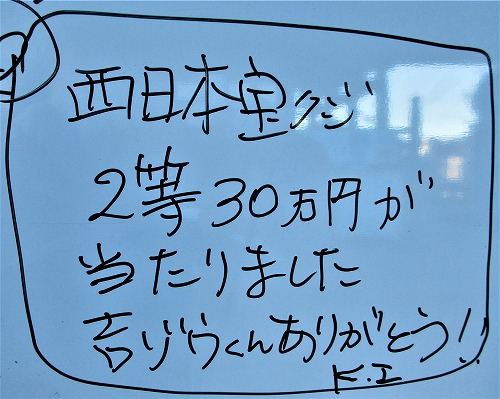 西日本宝クジ
2等30万円が
当たりました
吉ゾウくんありがとう!!
K.I